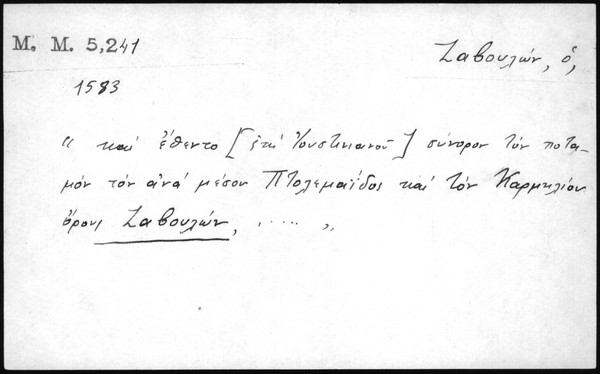 M. M. 5,241
Ζαβουλών, ὁ,
1593
“ καί ἔθεντο [ἐπί Ἰουστινιανοῦ] σύνορον τόν ποτα-
μόν τόν ἀνά μέσον Πτολεμαΐδος καί τόν Καρμηλίου
ὄρους Ζαβουλών, ..... „